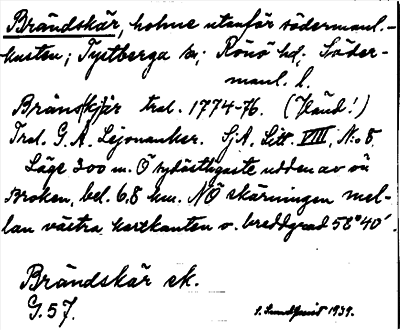 Brändskär, holme utanför södermanl.-
kusten; Tystberga sn; Rönö hd; Söder-
manl. l.
Bräns(k)jär tral. 1774-76. (Händ!)
Tral. G. A. Lejonanker. SjA. Litt. VIII, No 8.
Läge 300 m. Ö sydöstligaste udden av ön
Broken, bel. 6,8 km. NÖ skärningen mel-
lan västra kartkanten o. breddgrad 58°40'.
Brändskär ek.
G. 57.
S. Sundqvist 1939.